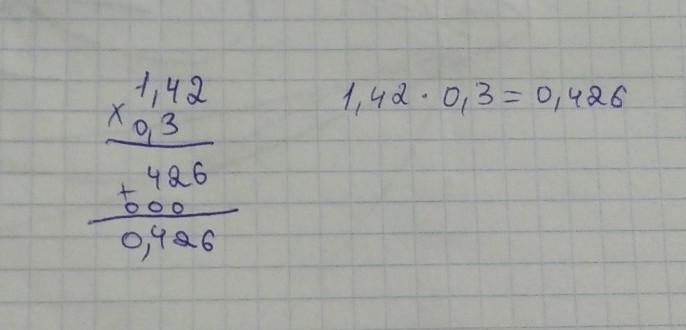 1,42
× 0,3
426
+ 000
0,426
1,42 · 0,3 = 0,426